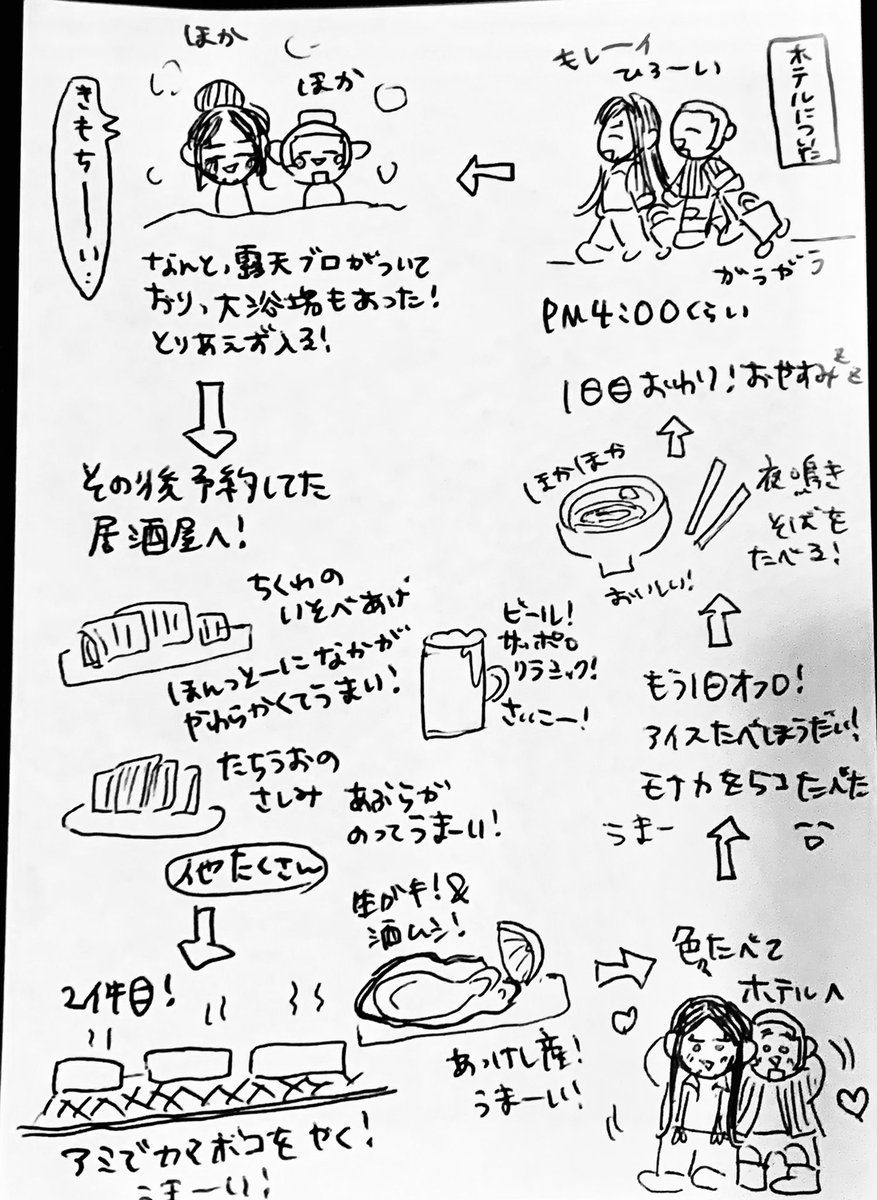 ホテルについた
キレーイ
ひろーい
がらがら
PM4:00くらい
ほか
ほか
きもちーーい…
なんと、露天ブロがついて
おり、大浴場もあった!
とりあえず入る!
その後予約してた
居酒屋へ!
ちくわの
いそべあげ
ほんっとーになかが
やわらかくてうまい!
ビール!
サッポロ
クラシック!
さいこー!
たちうおの
さしみ
あぶらが
のってうまーい!
他たくさん
2件目!
アミでカマボコをやく!
うまーい!
生ガキ!&
酒ムシ!
あっけし産!
うまーい!
色々たべて
ホテルへ
もう1回オフロ!
アイスたべほうだい!
モナカを5コたべた
うまー
夜鳴き
そばを
たべる!
ほかほか
おいしい!
1日目おわり!おやすみzz